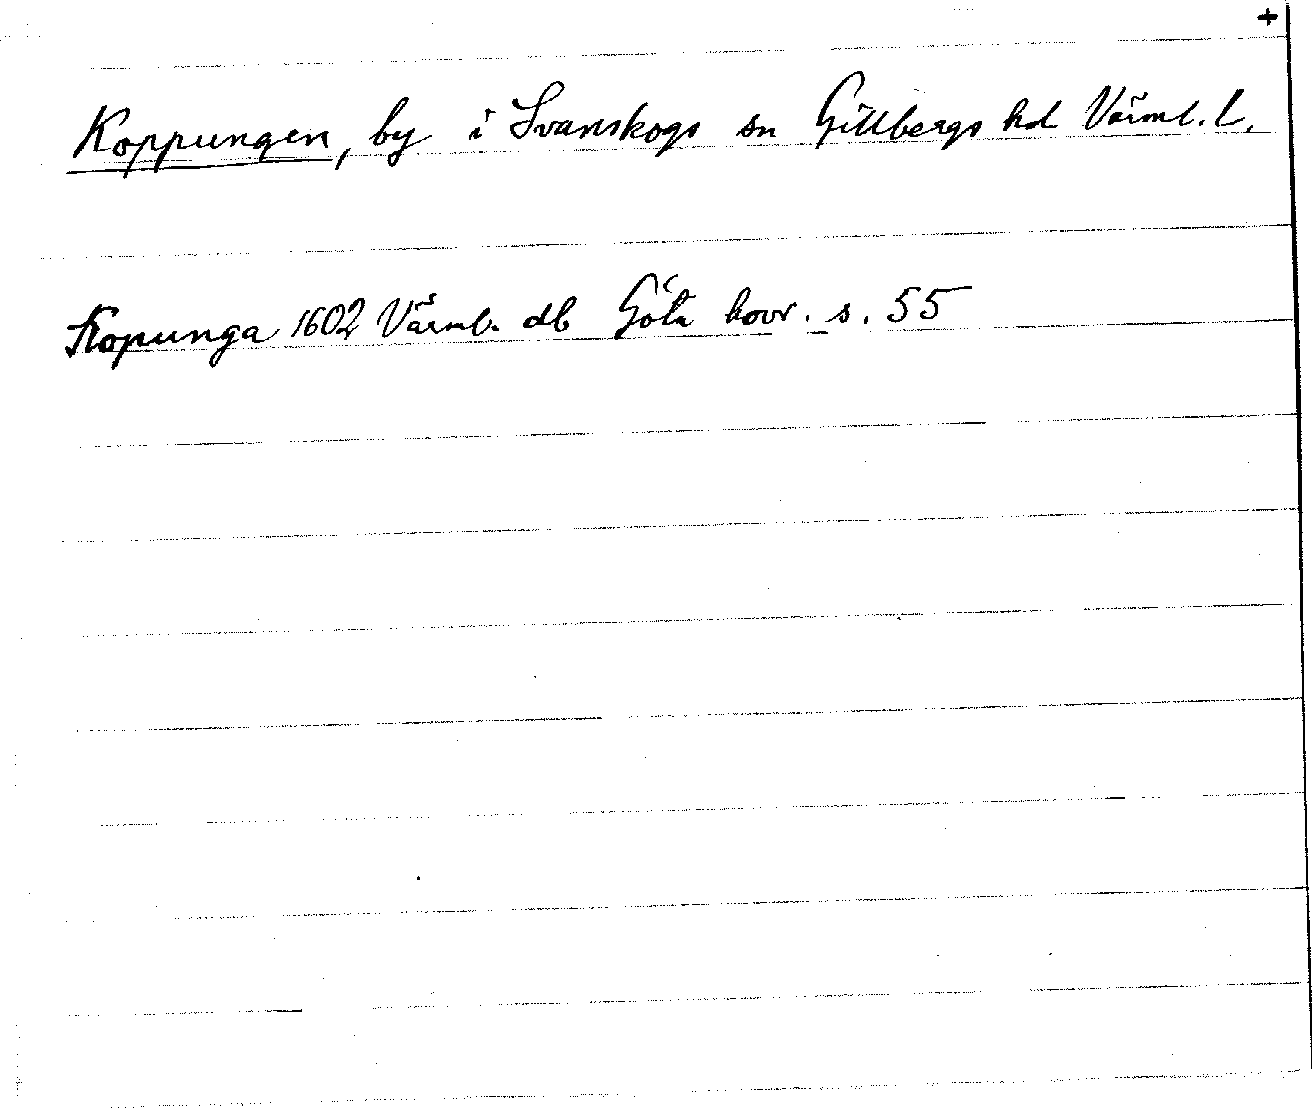 +
Koppungen, by i Svanskogs sn Gillbergs hd Värml. l.
Kopunga 1602 Värml. db Göta hovr. s. 55